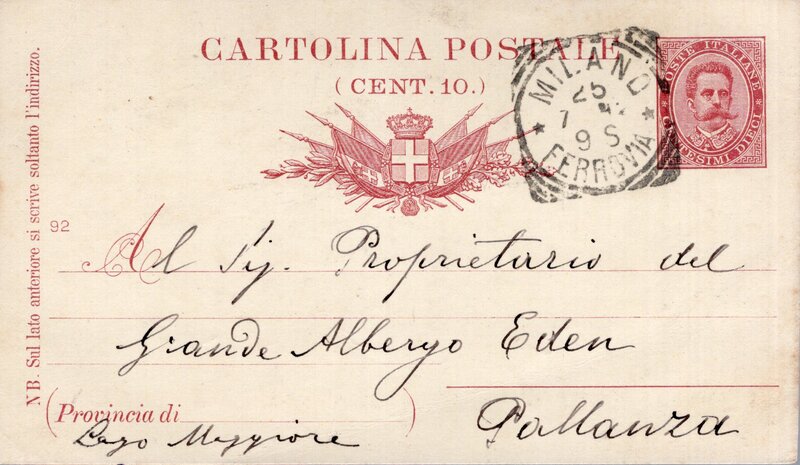 CARTOLINA POSTALE
(CENT. 10.)
POSTE ITALIANE
CENTESIMI DIECI
MILANO
25
7
9 S
FERROVIA
NB. Sul lato anteriore si scrive soltanto l'indirizzo.
92
Al Sig. Proprietario del
Grande Albergo Eden
(Provincia di )
Lago Maggiore
Pallanza